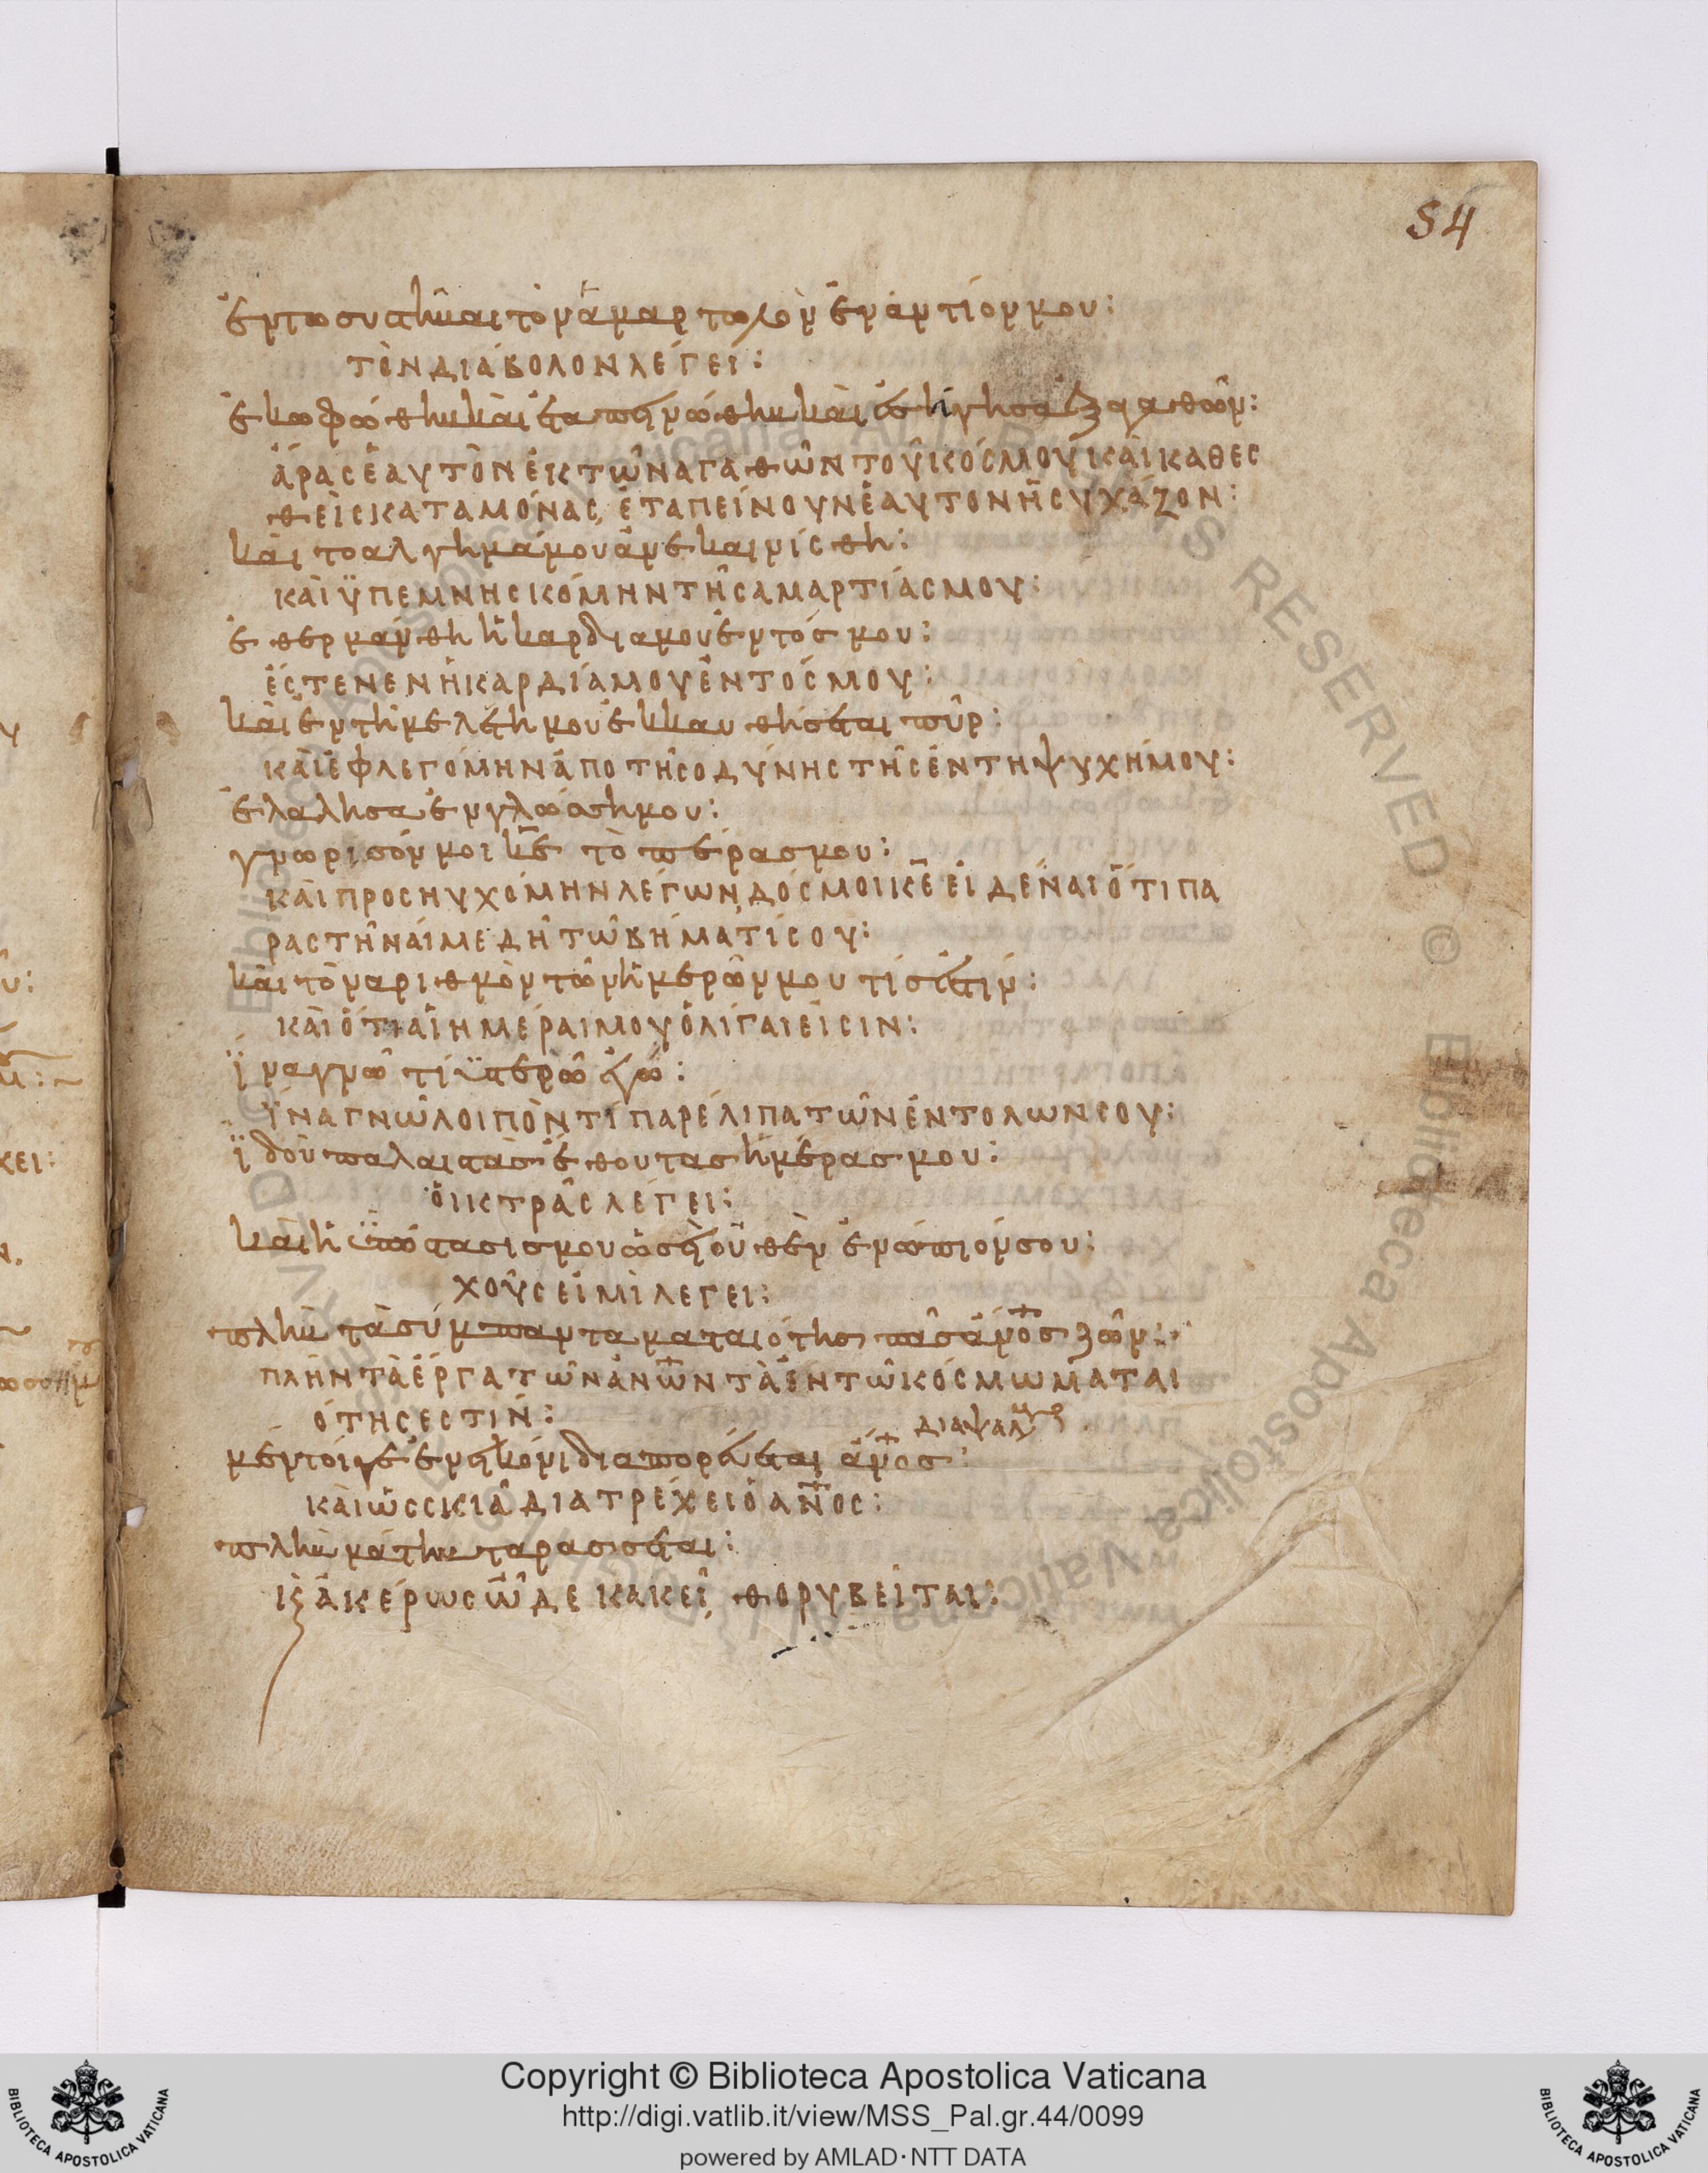 54
ἐν τω συστῆναι τὸν ἁμαρτωλὸν ἐναντίον μου:
ΤῸΝ ΔΙΆΒΟΛΟΝ ΛΈΓΕΙ:
ἐκωφώθην καὶ ἐταπεινώθην καὶ ἐσίγησα ἐξ ἀγαθῶν:
ἌΡΑϹ ἘΑΥΤῸΝ ἘΚ ΤΩ͂Ν ΑΓΑΘΩ͂Ν ΤΟΥ͂ ΚΌϹΜΟΥ ΚΑῚ ΚΑΘΕϹ
ΘΕῚϹ ΚΑΤΑΜΌΝΑϹ, ἘΤΑΠΕΊΝΟΥΝ ἙΑΥΤΟΝ ἩϹΥΧΆΖΟΝ:
καὶ το αλγημά μου ἀνεκαινίσθη:
ΚΑῚ ΫΠΕΜΝΗϹΚΌΜΗΝ ΤΗ͂Ϲ ΑΜΑΡΤΊΑϹ ΜΟΥ:
ἐθερμάνθη ἡ καρδια μου ἐντός μου:
ἘϹΤΕΝΕΝ Ἡ ΚΑΡΔΊΑ ΜΟΥ ἘΝΤΌϹ ΜΟΥ:
καὶ ἐν τῆ μελέτη μου ἐκκαυθήσεται πῦρ:
ΚΑῚ ἘΦΛΕΓΌΜΗΝ ἈΠΟ ΤΗ͂Ϲ ΟΔΎΝΗϹ ΤΗ͂Ϲ ἘΝ ΤΗ ΨΥΧΗ͂ ΜΟΥ:
ἐλαλησα ἐν γλώσση μου:
γνωρισόν μοι κ̅ε̅ τὸ πέρας μου:
ΚΑῚ ΠΡΟϹΗΥΧΌΜΗΝ ΛΈΓΩΝ, ΔΌϹ ΜΟΙ Κ̅Ε̅ ΕἸΔΈΝΑΙ ὍΤΙ ΠΑ
ΡΑϹΤΗ͂ΝΑΊ ΜΕ ΔΗ͂ ΤΩ͂ ΒΉΜΑΤΊ ϹΟΥ:
καὶ τὸν αριθμὸν τῶν ἡμερῶν μου τίς ἐστιν:
ΚΑῚ ὍΤΙ ΑἹ ΗΜΈΡΑΙ ΜΟΥ ὈΛΊΓΑΙ ΕἸϹΙΝ:
ΐνα γνῶ τί ϋστερῶ ἐγώ:
ΫΝΑ ΓΝΩ͂ ΛΟΙΠῸΝ ΤΊ ΠΑΡΈΛΙΠΑ ΤΩ͂Ν ἘΝΤΟΛΩΝ ϹΟΥ:
ϊδοὺ παλαιστὰς ἔθου τας ἡμέρας μου:
ὈΙΚΤΡΑ͂Ϲ ΛΈΓΕΙ:
καὶ ἡ ϋπόστασις μου ὡσεὶ οὐθὲν ἐνώπιόν σου:
ΧΟΥ͂Ϲ ΕἸΜῚ ΛΕΓΕΙ:
πλὴν τὰ σύμπαντα ματαιότης πᾶς ἀν̅ο̅ς ζῶν:
ΠΛῊΝ ΤᾺ ἘΡΓΑ ΤΩ͂Ν ἈΝ̅Ω̅Ν ΤᾺ ἘΝ ΤΩ͂ ΚΌϹΜΩ ΜΑΤΑΙ
ΌΤΗϹ ΕϹΤΊΝ: ΔΙΑΨΑΛΜ
μέντοιγε ἐν εἰκόνι διαπορεύεται ἄν̅ο̅ς:
ΚΑῚ ὩϹ ϹΚΙᾺ ΔΙΑΤΡΈΧΕΙ Ὁ ΑΝ̅ΟϹ:
πλὴν μάτην ταράσσεται:
Κ̀ ἈΚΈΡΩϹ ὩΔΕ ΚΑΚΕΙ͂, ΘΟΡΥΒΕΙ͂ΤΑΙ:
Copyright © Biblioteca Apostolica Vaticana
http://digi.vatlib.it/view/MSS_Pal.gr.44/0099
powered by AMLAD·NTT DATA